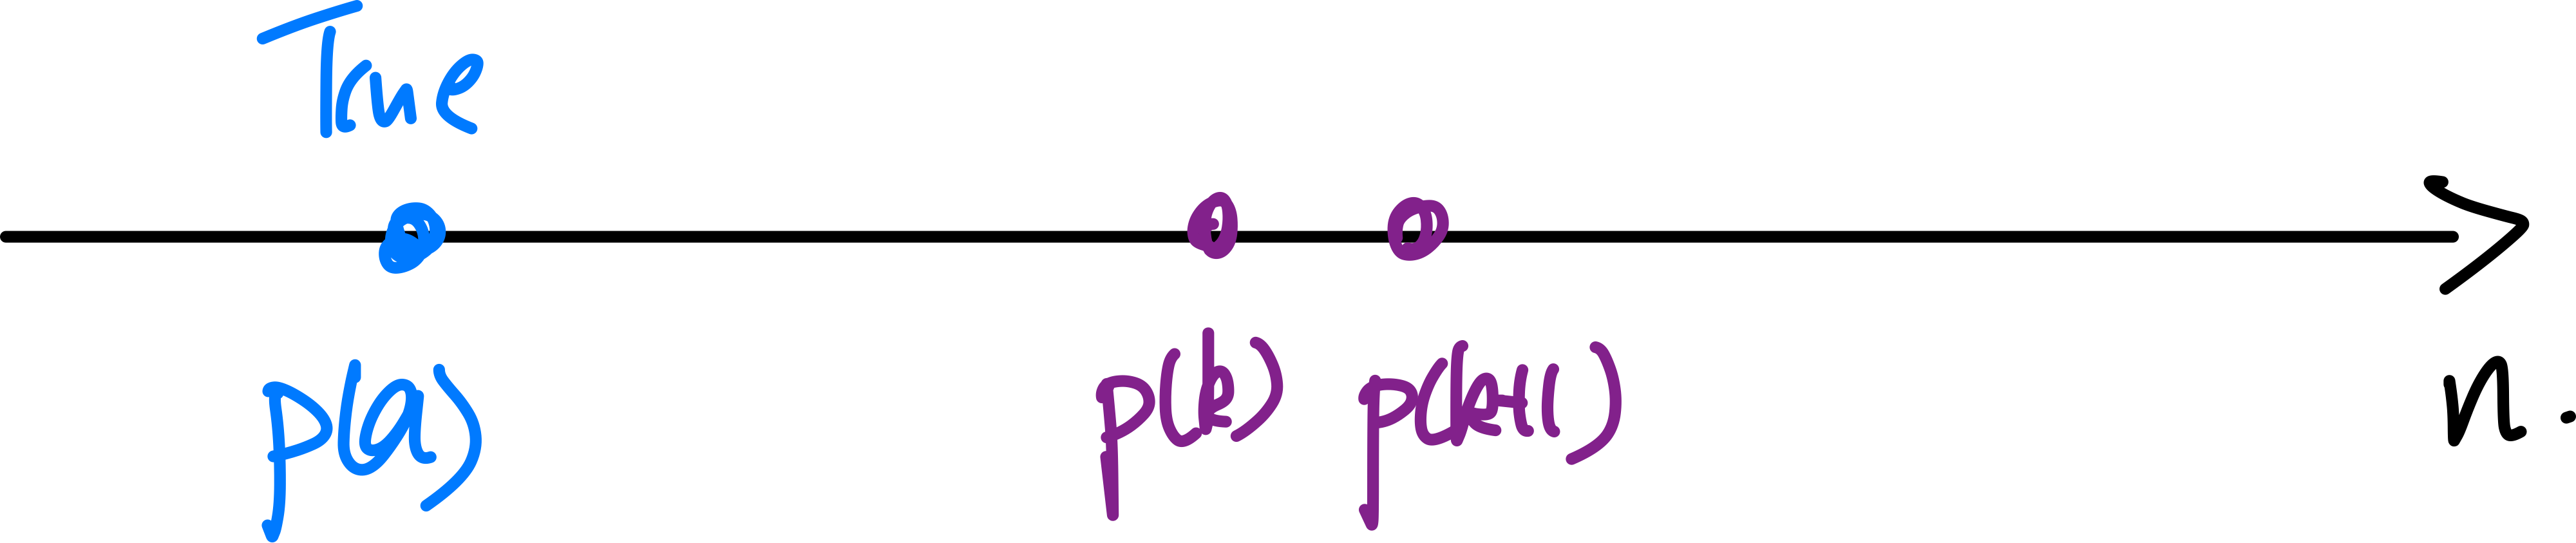 True
p(a) p(k) p(k+1) n.